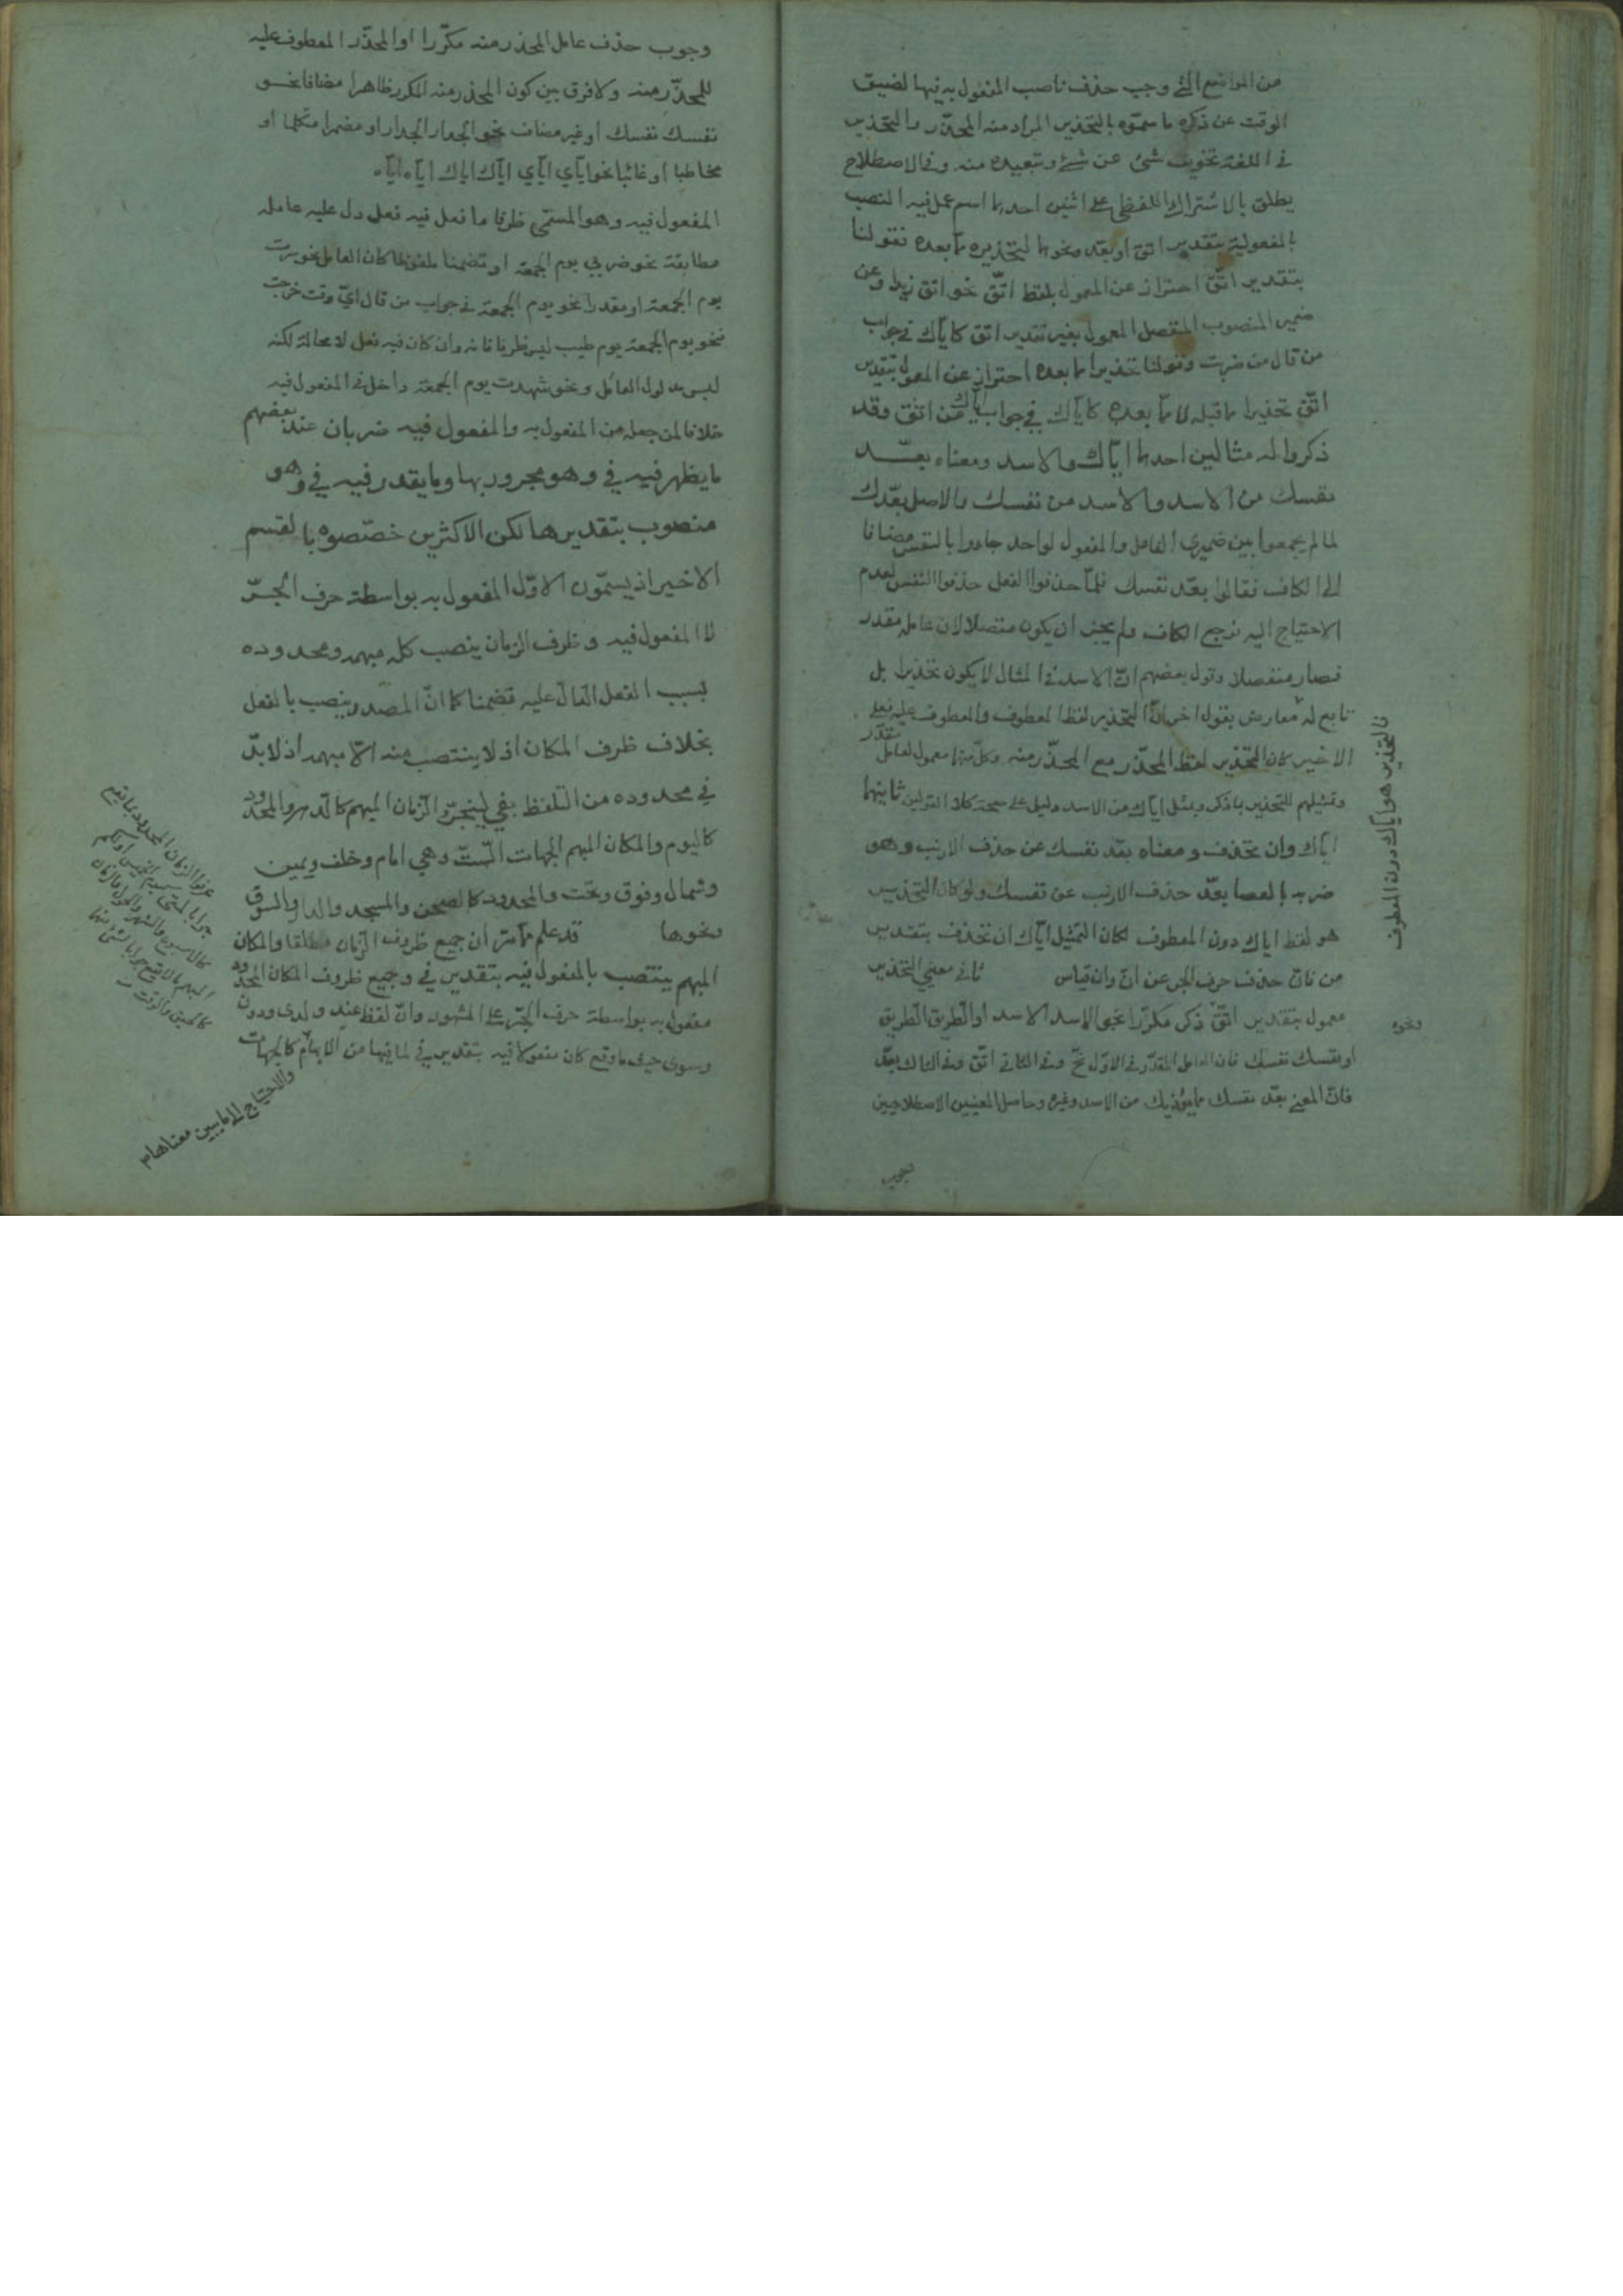 من المواضع التي وجب حذف ناصب المفعول به فيها لضيق
الوقت عن ذكره ما سموه بالتحذير المراد منه المحذّر والتحذير
في اللغة تخويف شئ عن شئ وتبعيده منه وفي الاصطلاح
يطلق بالاشتراك اللفظي على اثنين احدهما اسم عمل فيه النصب
بالمفعولية بتقدير اتق او بعّد ونحوهما لتحذيره مما بعده فقولنا
بتقدير اتّق احتراز عن المعمول بلفظ اتّق نحو اتق زيدا وعن
ضمير المنصوب المنفصل المعمول بغير تقدير اتق كاياك في جواب
من قال من ضربت وقولنا تحذيرا مما بعده احتراز عن المعمول بتقدير
اتّق تحذيرا مما قبله لا ممّا بعده كاياك في جواب من اتقى وقد
ذكروا له مثالين احدهما اياك والاسد ومعناه بعّد
نفسك من الاسد والاسد من نفسك والاصل بعّدك
لما لم يجمعوا بين ضميري الفاعل والمفعول لواحد جاءوا بالنفس مضافا
الى الكاف فقالوا بعّد نفسك فلمّا حذفوا الفعل حذفوا النفس لعدم
الاحتياج اليه فرجع الكاف ولم يجز ان يكون متصلا لان عامله مقدر
فصار منفصلا وقول بعضهم انّ الاسد في المثال لا يكون تحذيرا بل
تابع له معارض بقول اخر انّ التحذير لفظ المعطوف والمعطوف عليه فعلى
الاخير كان التحذير لفظ المحذّر مع المحذّر منه وكل منهما معمول لعامل مقدّر
وتمثيلهم للتحذير بما ذكر وبمثل اياك من الاسد دليل على صحة كلا القولين ثانيهما
اياك وان تحذف ومعناه بعّد نفسك عن حذف الارنب وهو
ضربه بالعصا بعّد حذف الارنب عن نفسك ولو كان التحذير
هو لفظ اياك دون المعطوف لكان التمثيل اياك ان تحذف بتقدير
من فانّ حذف حرف الجر عن انّ وان قياس ثاني معنيي التحذير
معمول بتقدير اتّق ذكر مكرّرا نحو الاسد الاسد او الطريق الطريق
او نفسك نفسك فان العامل المقدّر في الاوّل نحّ وفي الثاني اتّق وفي الثالث بعّد
فانّ المعنى بعّد نفسك مما يؤذيك من الاسد وغيره وحاصل المعنيين الاصطلاحيين
فالتحذير هو اياك دون المعطوف
ونحوه
وجوب حذف عامل المحذر منه مكرّرا او المحذّر المعطوف عليه
للمحذّر منه ولا فرق بين كون المحذر منه المكرر ظاهرا مضافا نحو
نفسك نفسك او غير مضاف نحو الجدار الجدار او مضمرا متكلما او
مخاطبا او غائبا نحو اياي اياي اياك اياك اياه اياه
المفعول فيه وهو المسمّى ظرفا ما فعل فيه فعل دل عليه عامله
مطابقة نحو ضربي يوم الجمعة او تضمنا ملفوظا كان العامل نحو سرت
يوم الجمعة او مقدرا نحو يوم الجمعة في جواب من قال ايّ وقت خرجت
فنحو يوم الجمعة يوم طيب ليس ظرفا فانه وان كان فيه فعل لا محالة لكنه
ليس مدلول العامل ونحو شهدت يوم الجمعة داخل في المفعول فيه
خلافا لمن جعله من المفعول به والمفعول فيه ضربان عند بعضهم
ما يظهر فيه في وهو مجرور بها وما يقدر فيه في وهو
منصوب بتقديرها لكن الاكثرين خصّصوه بالقسم
الاخير اذ يسمّون الاوّل المفعول به بواسطة حرف الجرّ
لا المفعول فيه وظرف الزمان ينصب كله مبهمه ومحدوده
بسبب الفعل الدال عليه تضمنا كما انّ المصدر ينصب بالفعل
بخلاف ظرف المكان اذ لا ينتصب منه الّا مبهمه اذ لا بدّ
في محدوده من التلفظ بفي لينجرّ والزمان المبهم كالدهر والمحدود
كاليوم والمكان المبهم الجهات الستّ وهي امام وخلف ويمين
وشمال وفوق وتحت والمحدود كالصحن والمسجد والدار والسوق
ونحوها قد علم ممّا مرّ ان جميع ظروف الزمان مطلقا والمكان
المبهم ينتصب بالمفعول فيه بتقدير في وجميع ظروف المكان المحدود
مفعول به بواسطة حرف الجرّ على المشهور وانّ لفظ عند ولدى ودون
وسوى حيث ما وقع كان مفعولا فيه بتقدير في لما فيها من الابهام كالجهات
والاحتياج الى ما يبين معناها
عرفوا الزمان المحدود بما يقع
كالاسبوع والشهر والحول والزمان
المبهم بما لا يقع جوابا لشئ منهما
كالحين والوقت